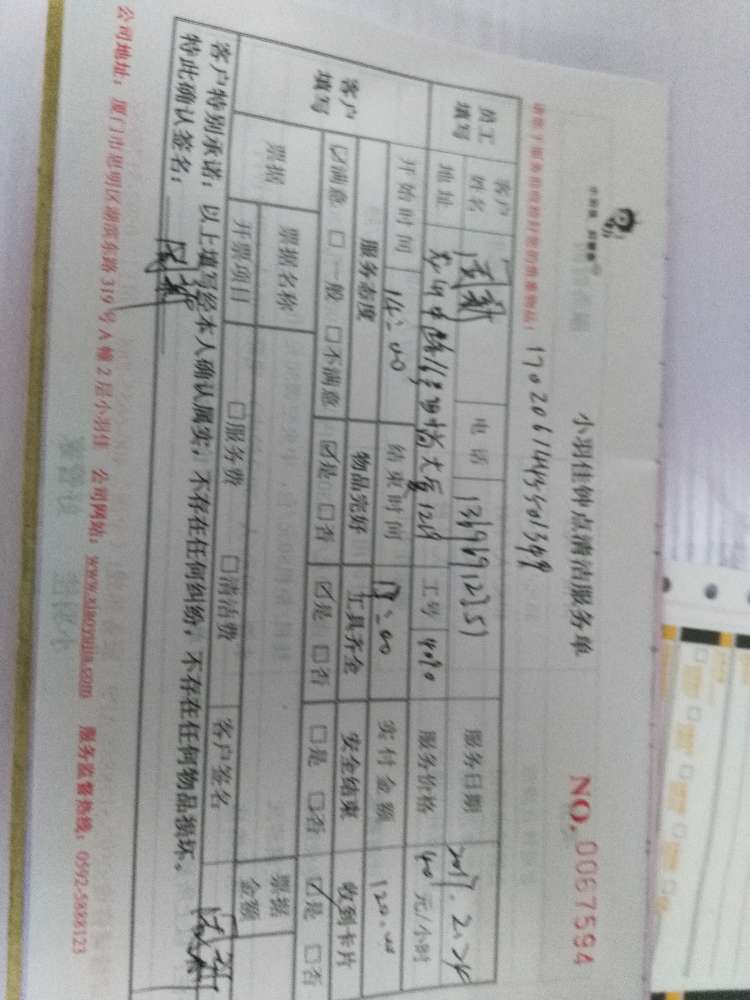 小羽佳钟点清洁服务单
NO. 0067594
17020614455501349
员工填写
客户姓名
电话
服务日期 2017.2.24
地址
工号 4090
服务价格 40 元/小时
开始时间 14:00 结束时间 17:00 实付金额 120.00
客户填写
服务态度 物品完好 工具齐全 安全结束 收到卡片
☑满意 □一般 □不满意 ☑是 □否 ☑是 □否 □是 □否 ☑是 □否
票据 票据名称 票据金额
开票项目 □服务费 □清洁费 客户签名
客户特别承诺:以上填写经本人确认属实,不存在任何纠纷,不存在任何物品损坏。
特此确认签名:
公司地址:厦门市思明区湖滨东路 319 号 A 幢 2 层小羽佳 公司网站:www.xiaoyujia.com 服务监督热线:0592-5888123